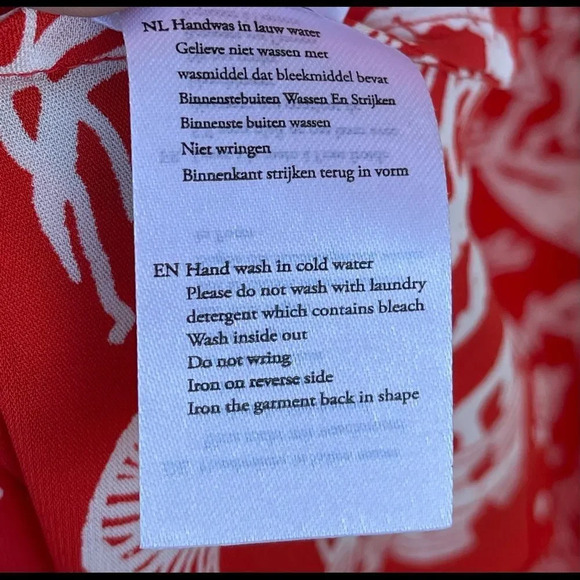 NL Handwas in lauw water
Gelieve niet wassen met
wasmiddel dat bleekmiddel bevat
Binnenstebuiten Wassen En Strijken
Binnenste buiten wassen
Niet wringen
Binnenkant strijken terug in vorm
EN Hand wash in cold water
Please do not wash with laundry
detergent which contains bleach
Wash inside out
Do not wring
Iron on reverse side
Iron the garment back in shape